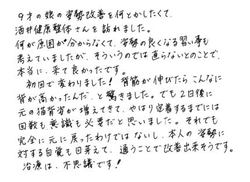 9才の娘の姿勢改善を何とかしたくて、
酒井健康整体さんを訪れました。
何が原因が分からなくて、姿勢の良くなる習い事も
考えていましたが、そういうのでは直らないとのことで、
本当に、来て良かったです。
初回で変わりました! 背筋が伸びたらこんなに
背が高かったんだ、と驚きました。でも2日後に
元の猫背姿が増えてきて、やはり定着するまでには
回数も意識も必要だと思いました。それでも
完全に元に戻ったわけではないし、本人の姿勢に
対する自覚も目芽えて、通うことで改善出来そうです。
治源は、不思議です!